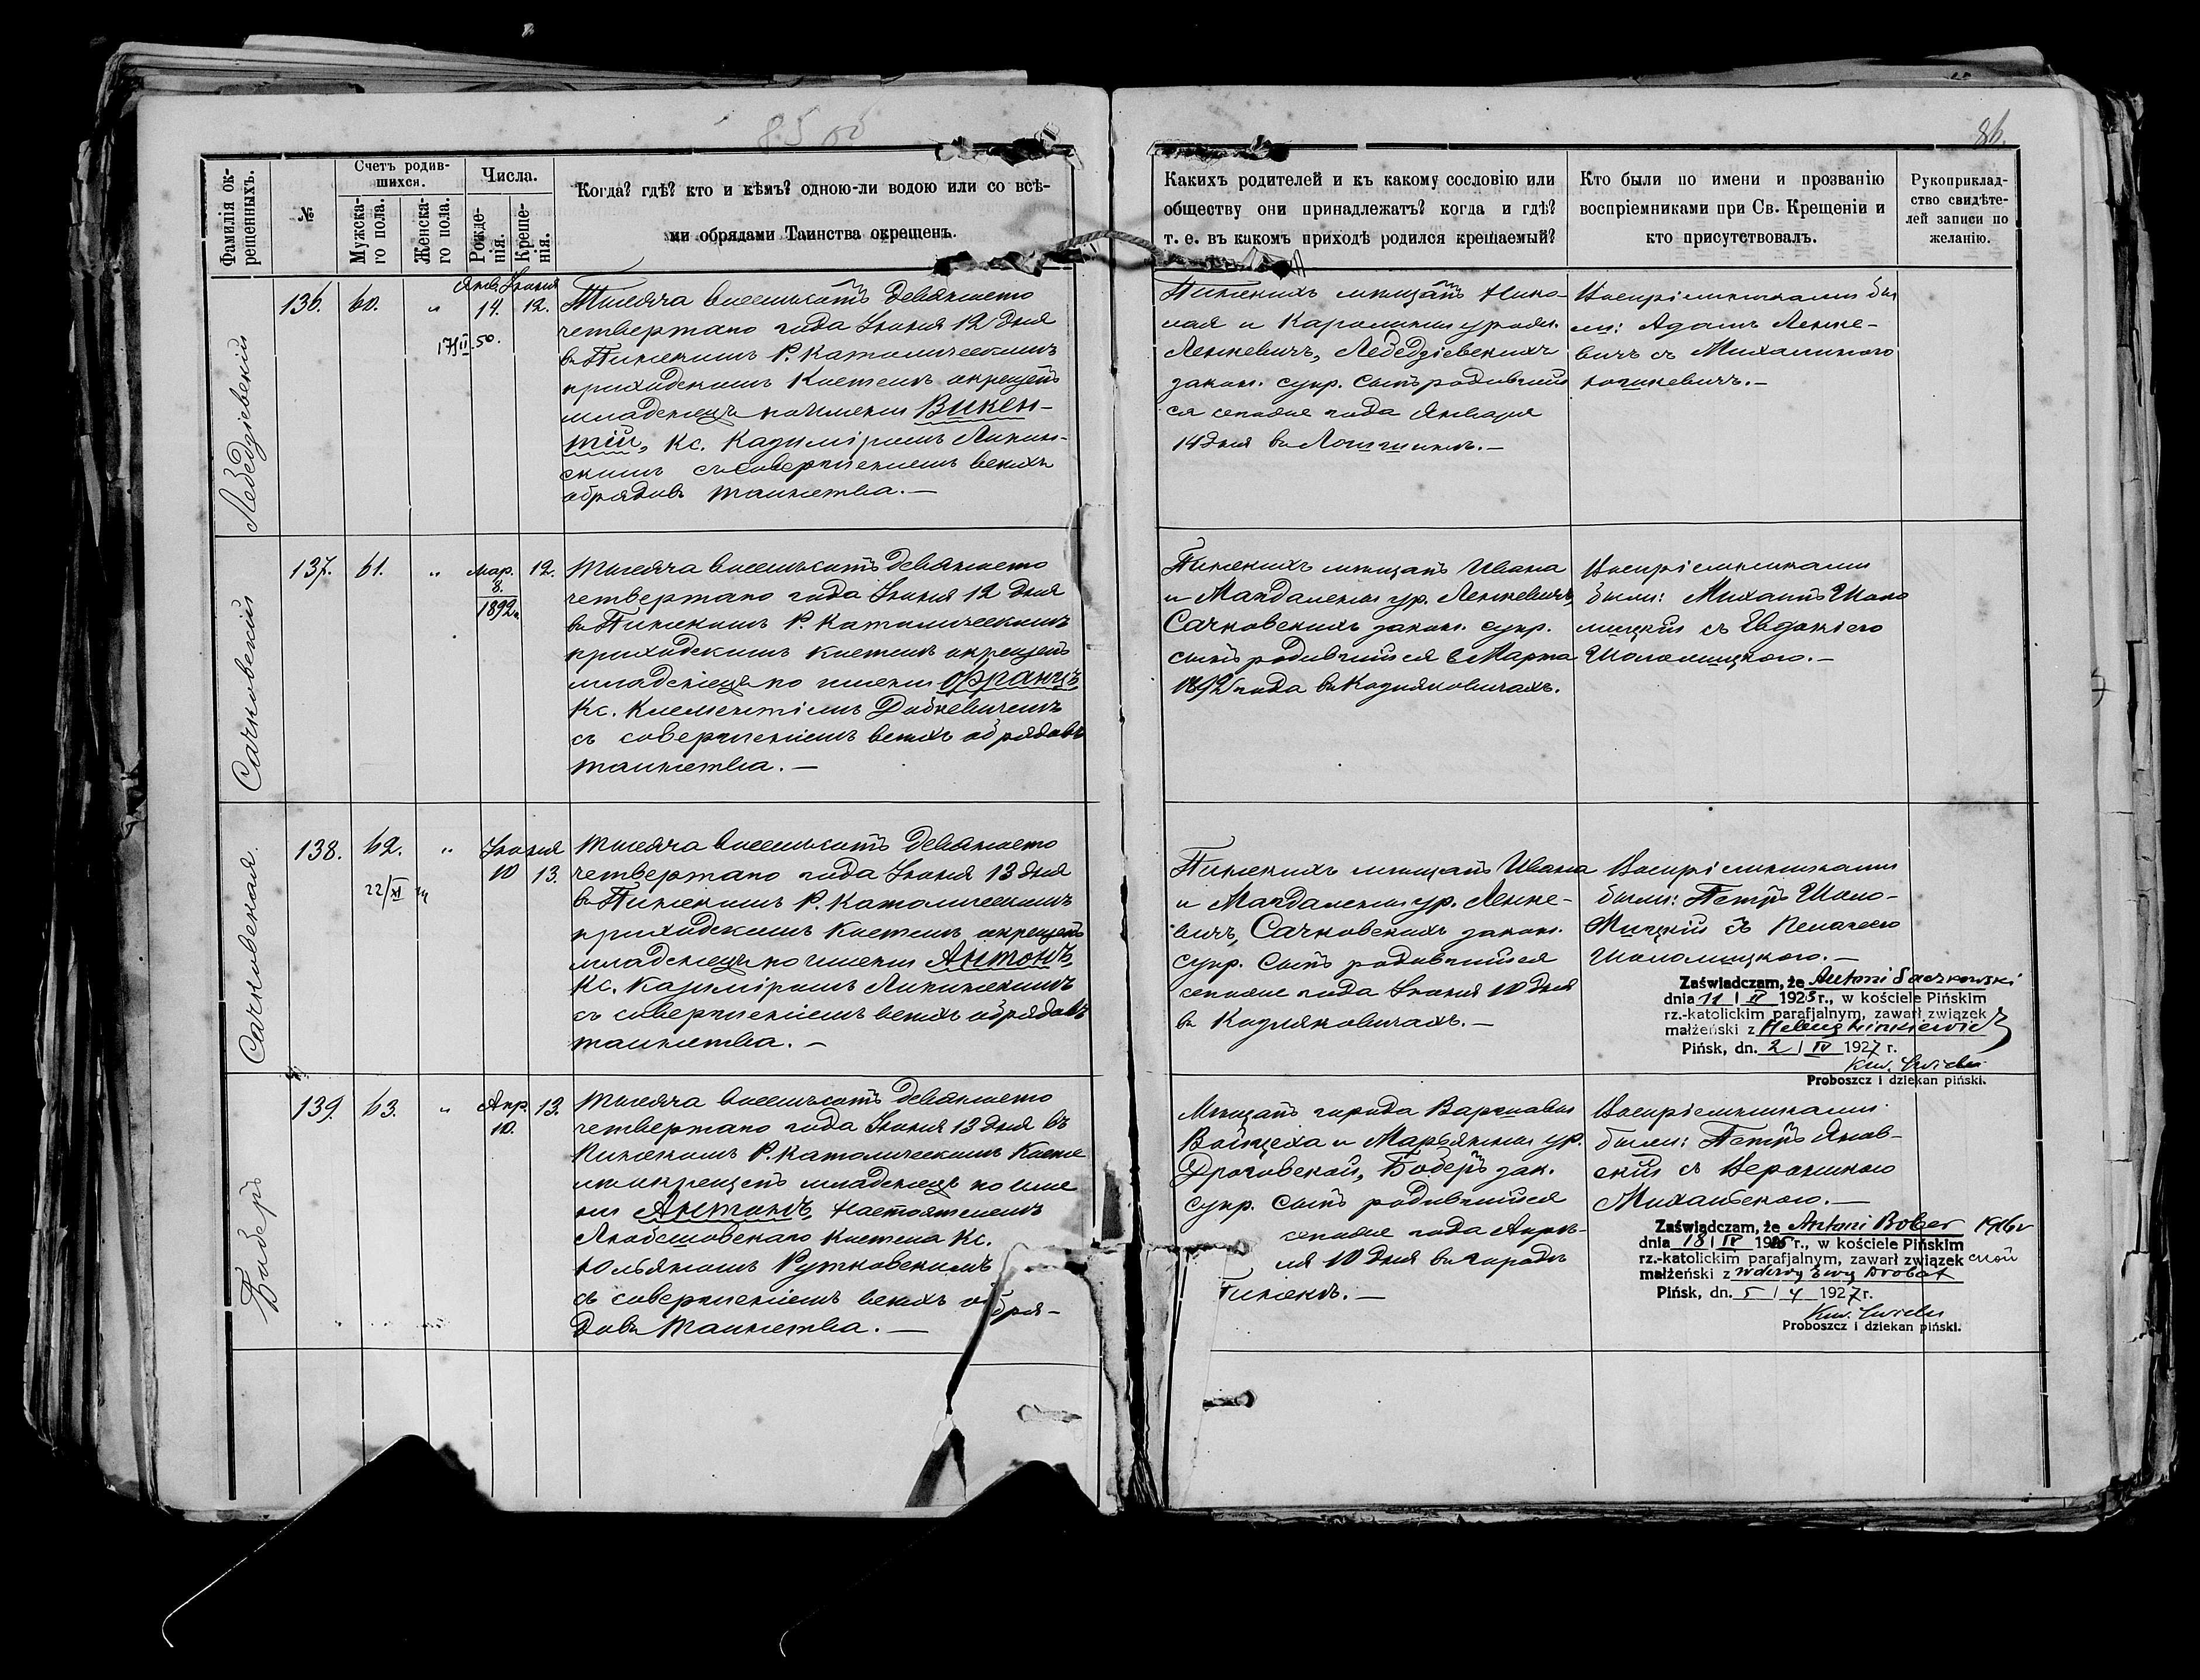 85
86.
Фамилія ок-
рещенныхъ.
№
Счетъ родив-
шихся.
Мужска-
го пола.
Женска-
го пола.
Числа.
Рожде-
нія.
Креще-
нія.
Когда? гдѣ? кто и кѣмъ? одною-ли водою или со всѣ-
ми обрядами Таинства окрещенъ.
Какихъ родителей и къ какому сословію или
обществу они принадлежатъ? когда и гдѣ?
т. е. въ какомъ приходѣ родился крещаемый?
Кто были по имени и прозванію
воспріемниками при Св. Крещеніи и
кто присутствовалъ.
Рукоприклад-
ство свидѣте-
лей записи по
желанію.
Лебедзіевскій
136. 60. "
Янв. Іюня
14. 12.
17/II 50.
Тысяча восемьсотъ девяносто
четвертаго года Іюня 12 дня
въ Пинскомъ Р. Католическомъ
приходскомъ костелѣ окрещенъ
младенецъ по имени Викен-
тій, Кс. Казиміромъ Липин-
скимъ съ совершеніемъ всѣхъ
обрядовъ таинства.—
Пинскихъ мѣщанъ Нико-
лая и Каролины урожд.
Ленкевичъ, Лебедзіевскихъ
закон. супр. сынъ родивший
ся сегоже года Января
14 дня въ Логишинѣ.—
Воспріемниками бы
ли: Адамъ Ленке-
вичъ съ Михалиною
.—
Сачковскій
137. 61. " Мар. 12.
8.
1892 г.
Тысяча восемьсотъ девяносто
четвертаго года Іюня 12 дня
въ Пинскомъ Р. Католическомъ
приходскомъ костелѣ окрещенъ
младенецъ по имени Францъ
Кс. Климентіемъ
съ совершеніемъ всѣхъ обрядовъ
таинства.—
Пинскихъ мѣщанъ Ивана
и Магдалены ур. Ленкевичъ,
Сачковскихъ закон. супр.
сынъ родившийся 8 Марта
1892 года въ Козляковичахъ.
Воспріемниками
были: Михаилъ Шоло
мицкій съ Евдокіею
Шоломицкою.—
Сачковская.
138. 62. " Іюня
10 13.
22/XI
Тысяча восемьсотъ девяносто
четвертаго года Іюня 13 дня
въ Пинскомъ Р. Католическомъ
приходскомъ костелѣ окрещенъ
младенецъ по имени Антонъ,
Кс. Казиміромъ Липинскимъ
съ совершеніемъ всѣхъ обрядовъ
таинства.—
Пинскихъ мѣщанъ Ивана
и Магдалены ур. Ленке-
вичъ, Сачковскихъ закон.
супр. Сынъ родившийся
сегоже года Іюня 10 дня
въ Козляковичахъ.—
Воспріемниками
были: Петръ Шоло-
мицкій съ Пелагеею
Шоломицкою.—
Zaświadczam, że Antoni Saczkowski
dnia 11 / II 1925 r., w kościele Pińskim
rz.-katolickim parafjalnym, zawarł związek
małżeński z Heleną
Pińsk, dn. 2 / IV 1927 r.
Proboszcz i dziekan piński.
Баберъ
139. 63. " Апр. 13.
10.
Тысяча восемьсотъ девяносто
четвертаго года Іюня 13 дня въ
Пинскомъ Р. Католическомъ Косте
лѣ окрещенъ младенецъ по име
ни Антонъ, Настоятелемъ
Любешовскаго костела Кс.
Юльяномъ Рутковскимъ
съ совершеніемъ всѣхъ обря-
довъ таинства.—
Мѣщанъ города Варшавы
Войцеха и Марьянны ур.
Дроговской, Боберъ зак.
супр. Сынъ родившийся
сегоже года Апрѣ-
ля 10 дня въ городѣ
Пинскѣ.—
Воспріемниками
были: Петръ Янов-
скій съ Вероникою
Михальскою.—
Zaświadczam, że Antoni Bober 1926 r
dnia 18 / IV 1925 r., w kościele Pińskim
rz.-katolickim parafjalnym, zawarł związek
małżeński z wdową Ewą Drobat
Pińsk, dn. 5 / 4 1927 r.
Proboszcz i dziekan piński.